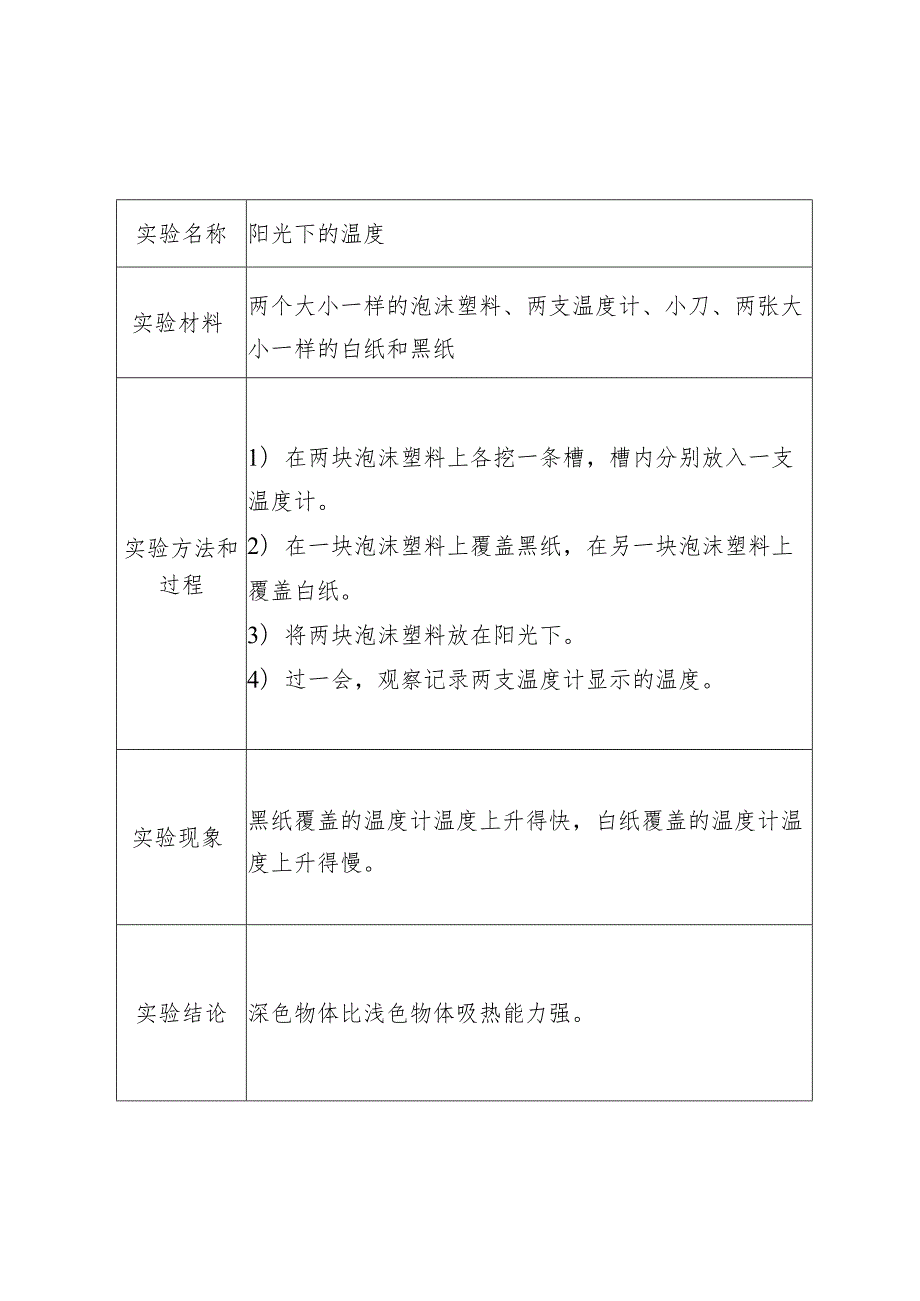 实验名称
阳光下的温度
实验材料
两个大小一样的泡沫塑料、两支温度计、小刀、两张大
小一样的白纸和黑纸
实验方法和
过程
1）在两块泡沫塑料上各挖一条槽，槽内分别放入一支
温度计。
2）在一块泡沫塑料上覆盖黑纸，在另一块泡沫塑料上
覆盖白纸。
3）将两块泡沫塑料放在阳光下。
4）过一会，观察记录两支温度计显示的温度。
实验现象
黑纸覆盖的温度计温度上升得快，白纸覆盖的温度计温
度上升得慢。
实验结论
深色物体比浅色物体吸热能力强。